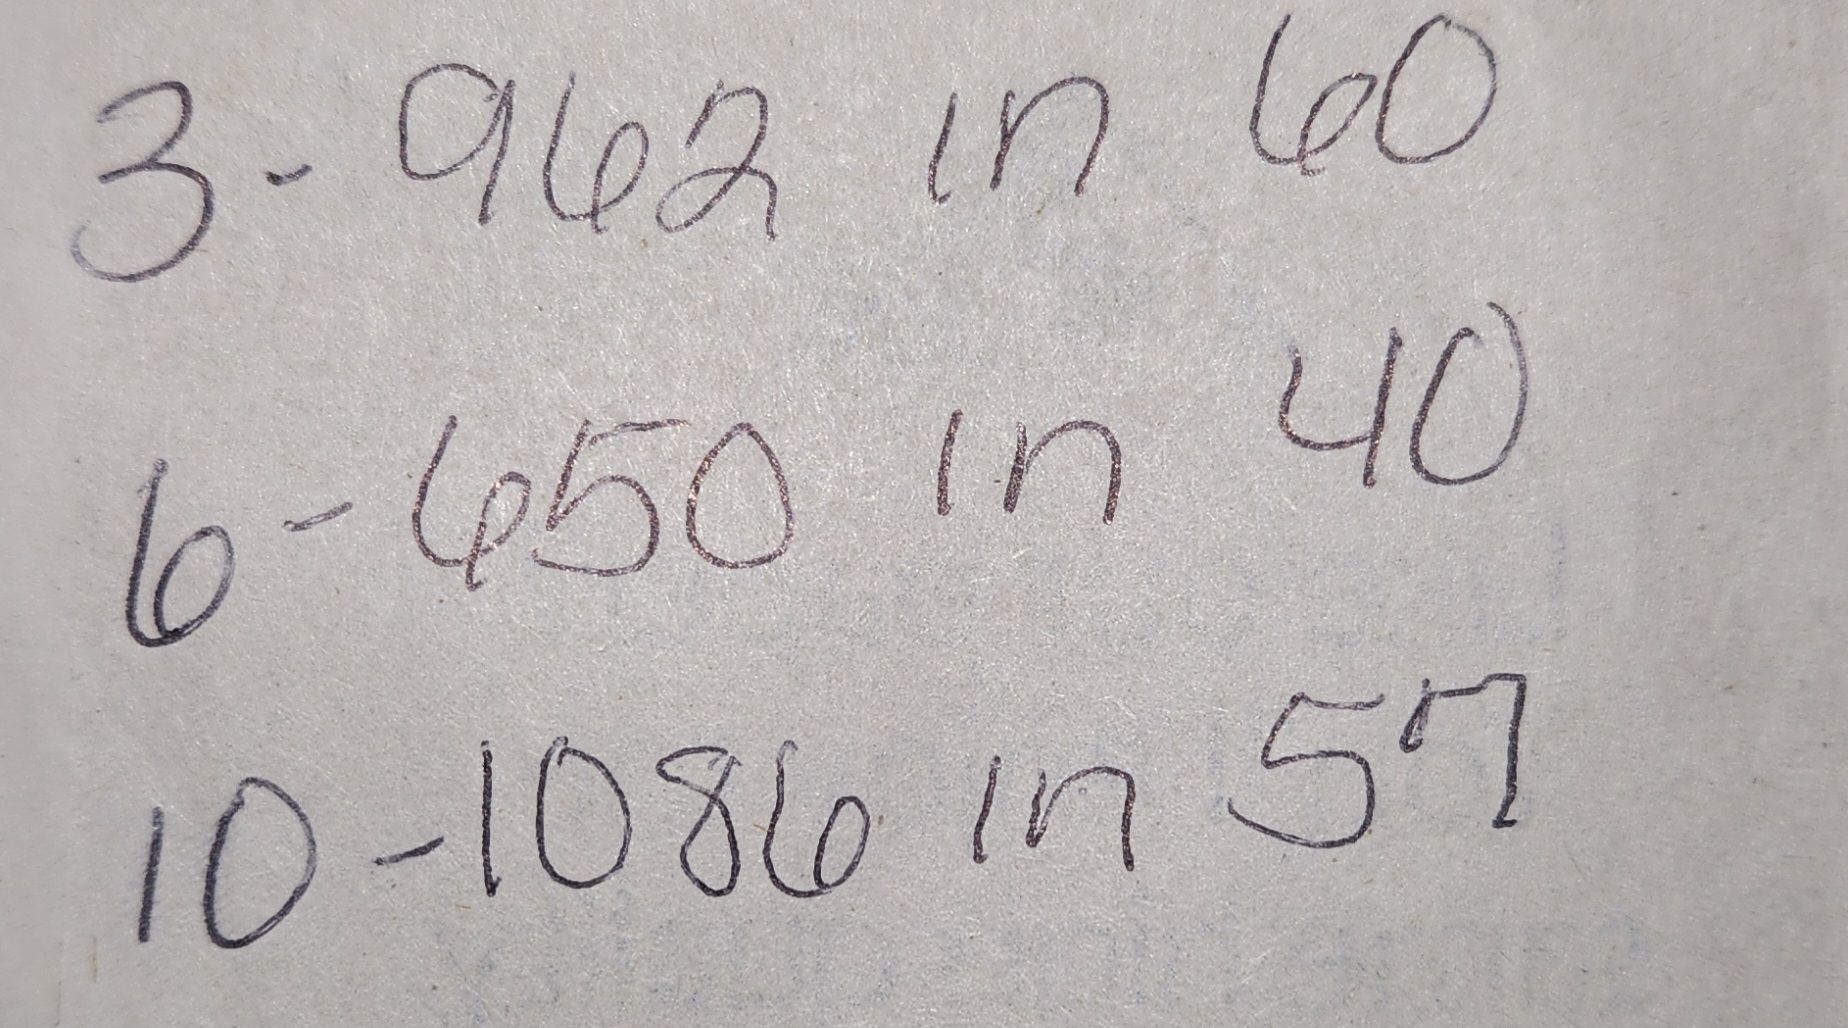 3-962 in 60
6-650 in 40
10-1086 in 57